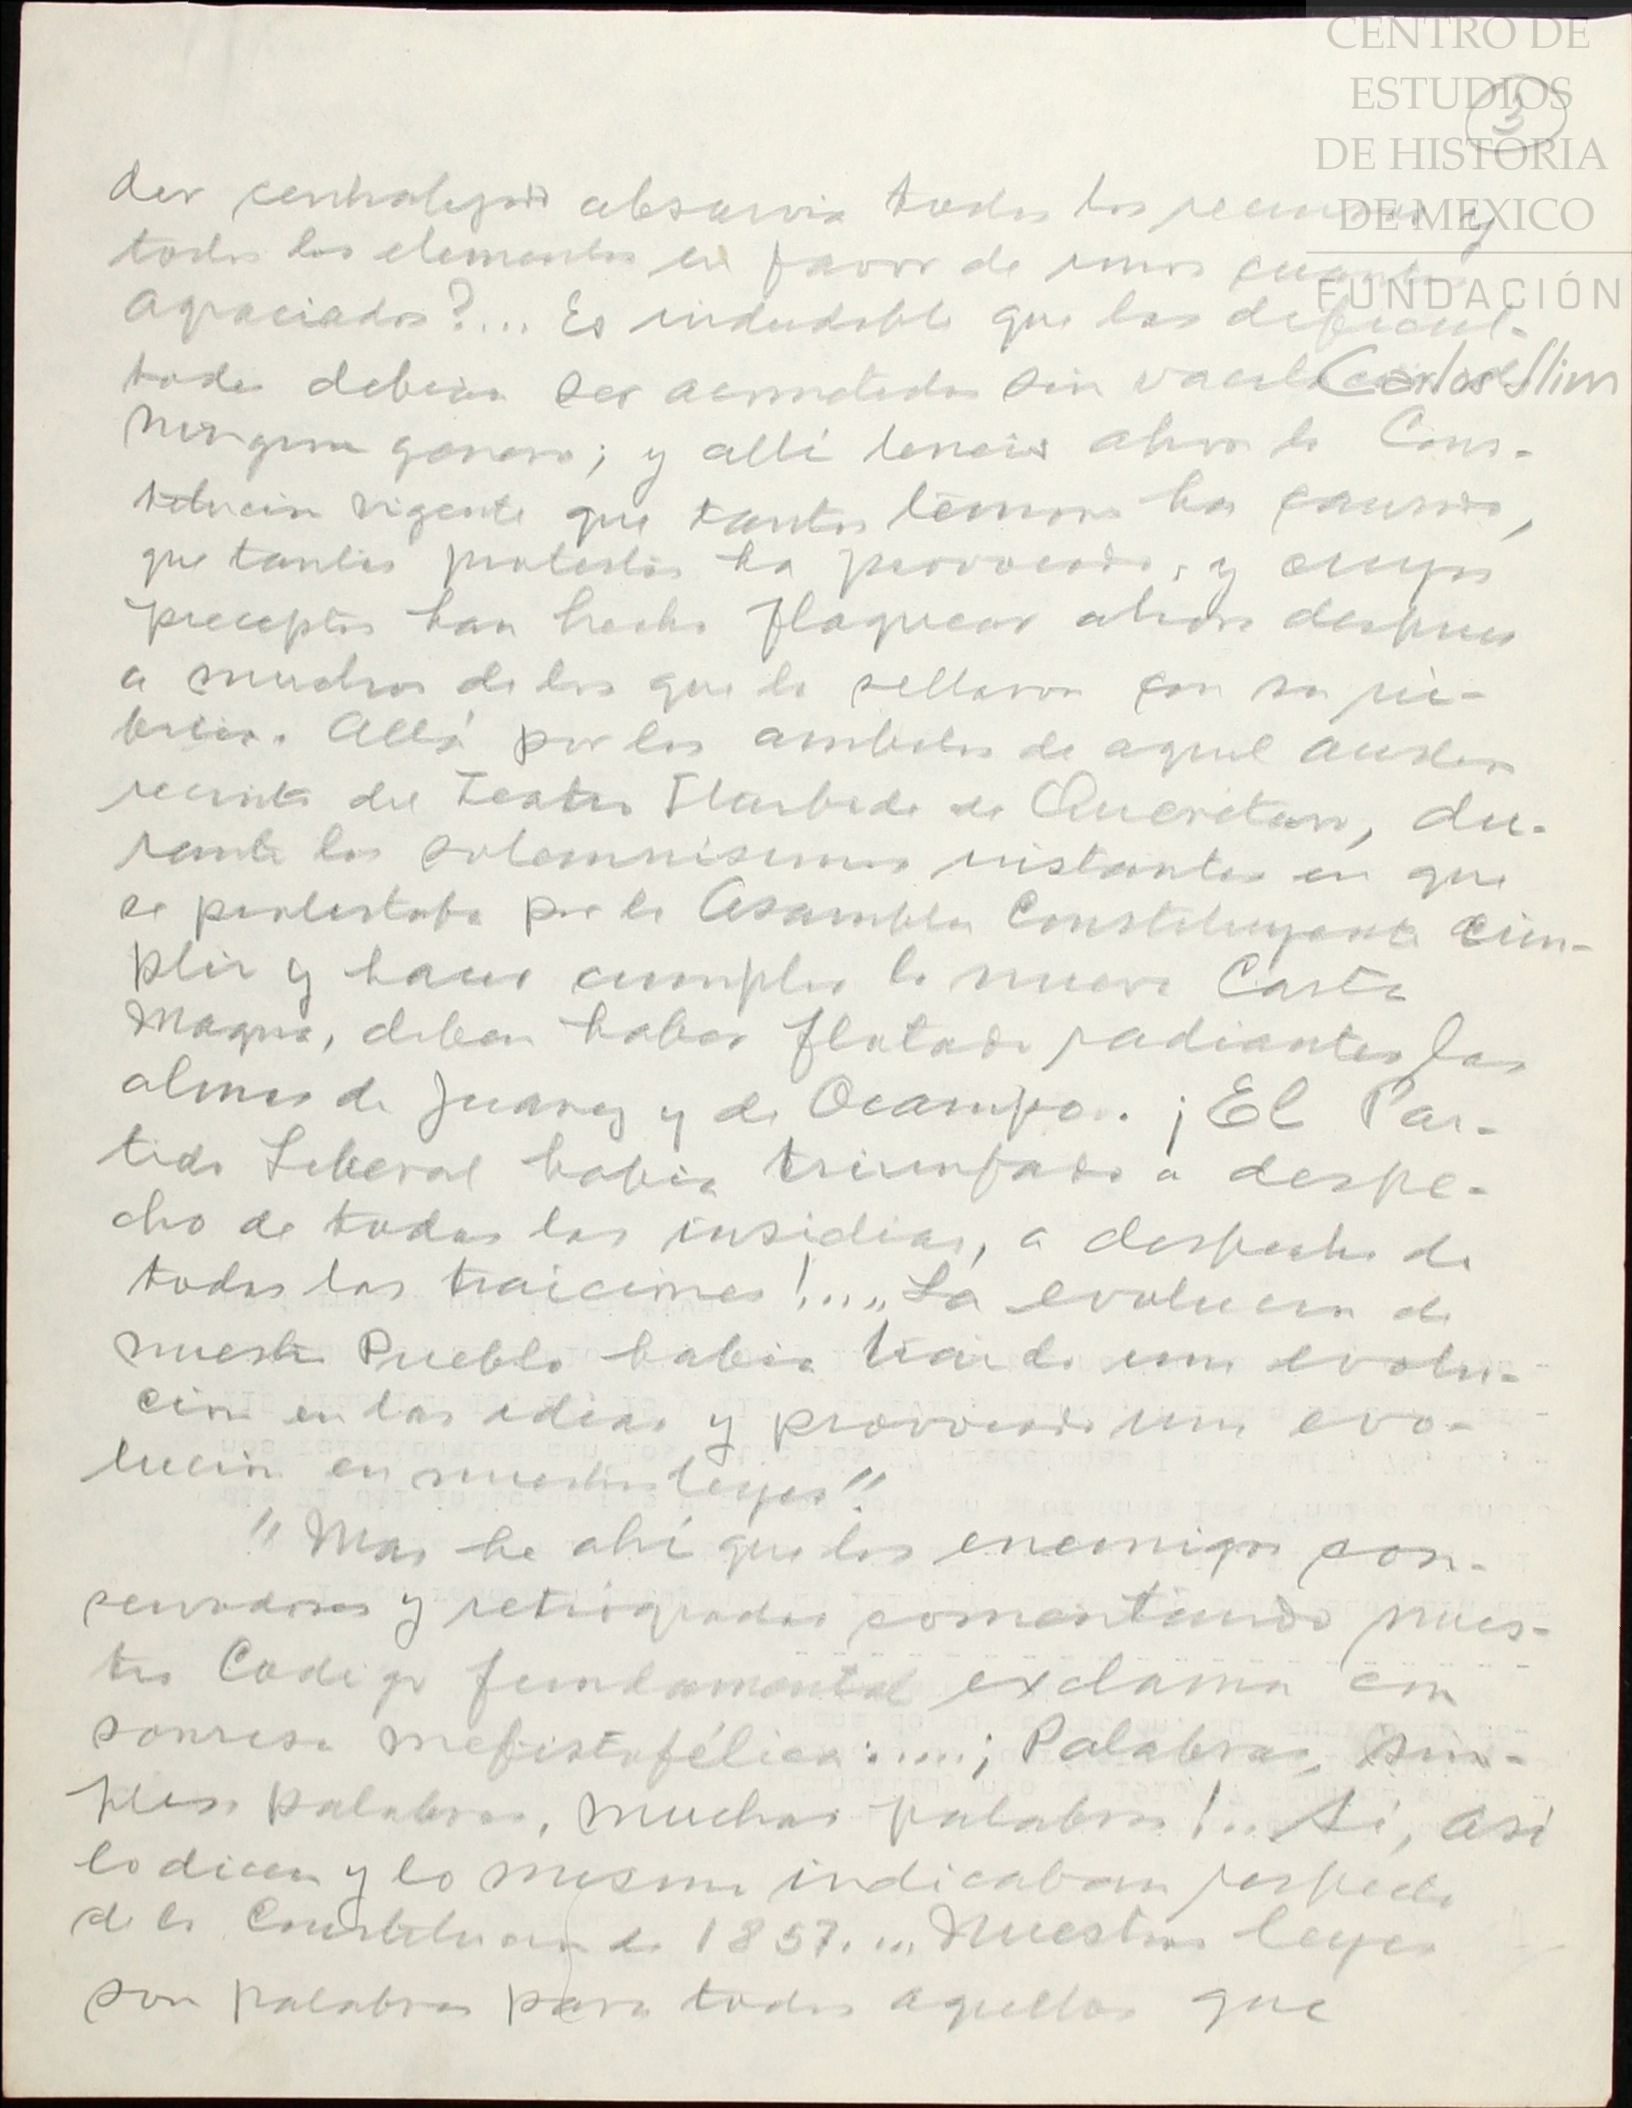 CENTRO DE
ESTUDIOS
DE HISTORIA
DE MEXICO
FUNDACIÓN
Carlos Slim
3
der centralizado absorvia todos los recursos y
todos los elementos en favor de unos cuantos
agraciados?... Es indudable que las dificul-
tades debian ser acometidas sin vacilaciones de
ningun genero; y allí teneis ahora la Cons-
titucion vigente que tantos temores ha causado,
que tantas protestas ha provocado, y cuyos
preceptos han hecho flaquear ahora despues
a muchos de los que la sellaron con su rú-
brica. Allá por los ambitos de aquel austero
recinto del Teatro Iturbide de Queretaro, du-
rante los solemnisimos instantes en que
se protestaba por la Asamblea Constituyente cum-
plir y hacer cumplir la nueva Carta
Magna, deben haber flotado radiantes las
almas de Juarez y de Ocampo. ¡El Par-
tido Liberal habia triunfado a despe-
cho de todas las insidias, a despecho de
todas las traiciones!.... La evolucion de
nuestro Pueblo habia traido una evolu-
cion en las ideas y provocado una evo-
lucion en nuestras leyes".
"Mas he ahí que los enemigos con-
servadores y retrógrados comentando nues-
tro Codigo fundamental exclaman con
sonrisa mefistofélica:....¡Palabras, sim-
ples palabras, muchas palabras!... Si, asi
lo dicen y lo mismo indicaban respecto
de la Constitucion de 1857.... Nuestras leyes
son palabras para todos aquellos que